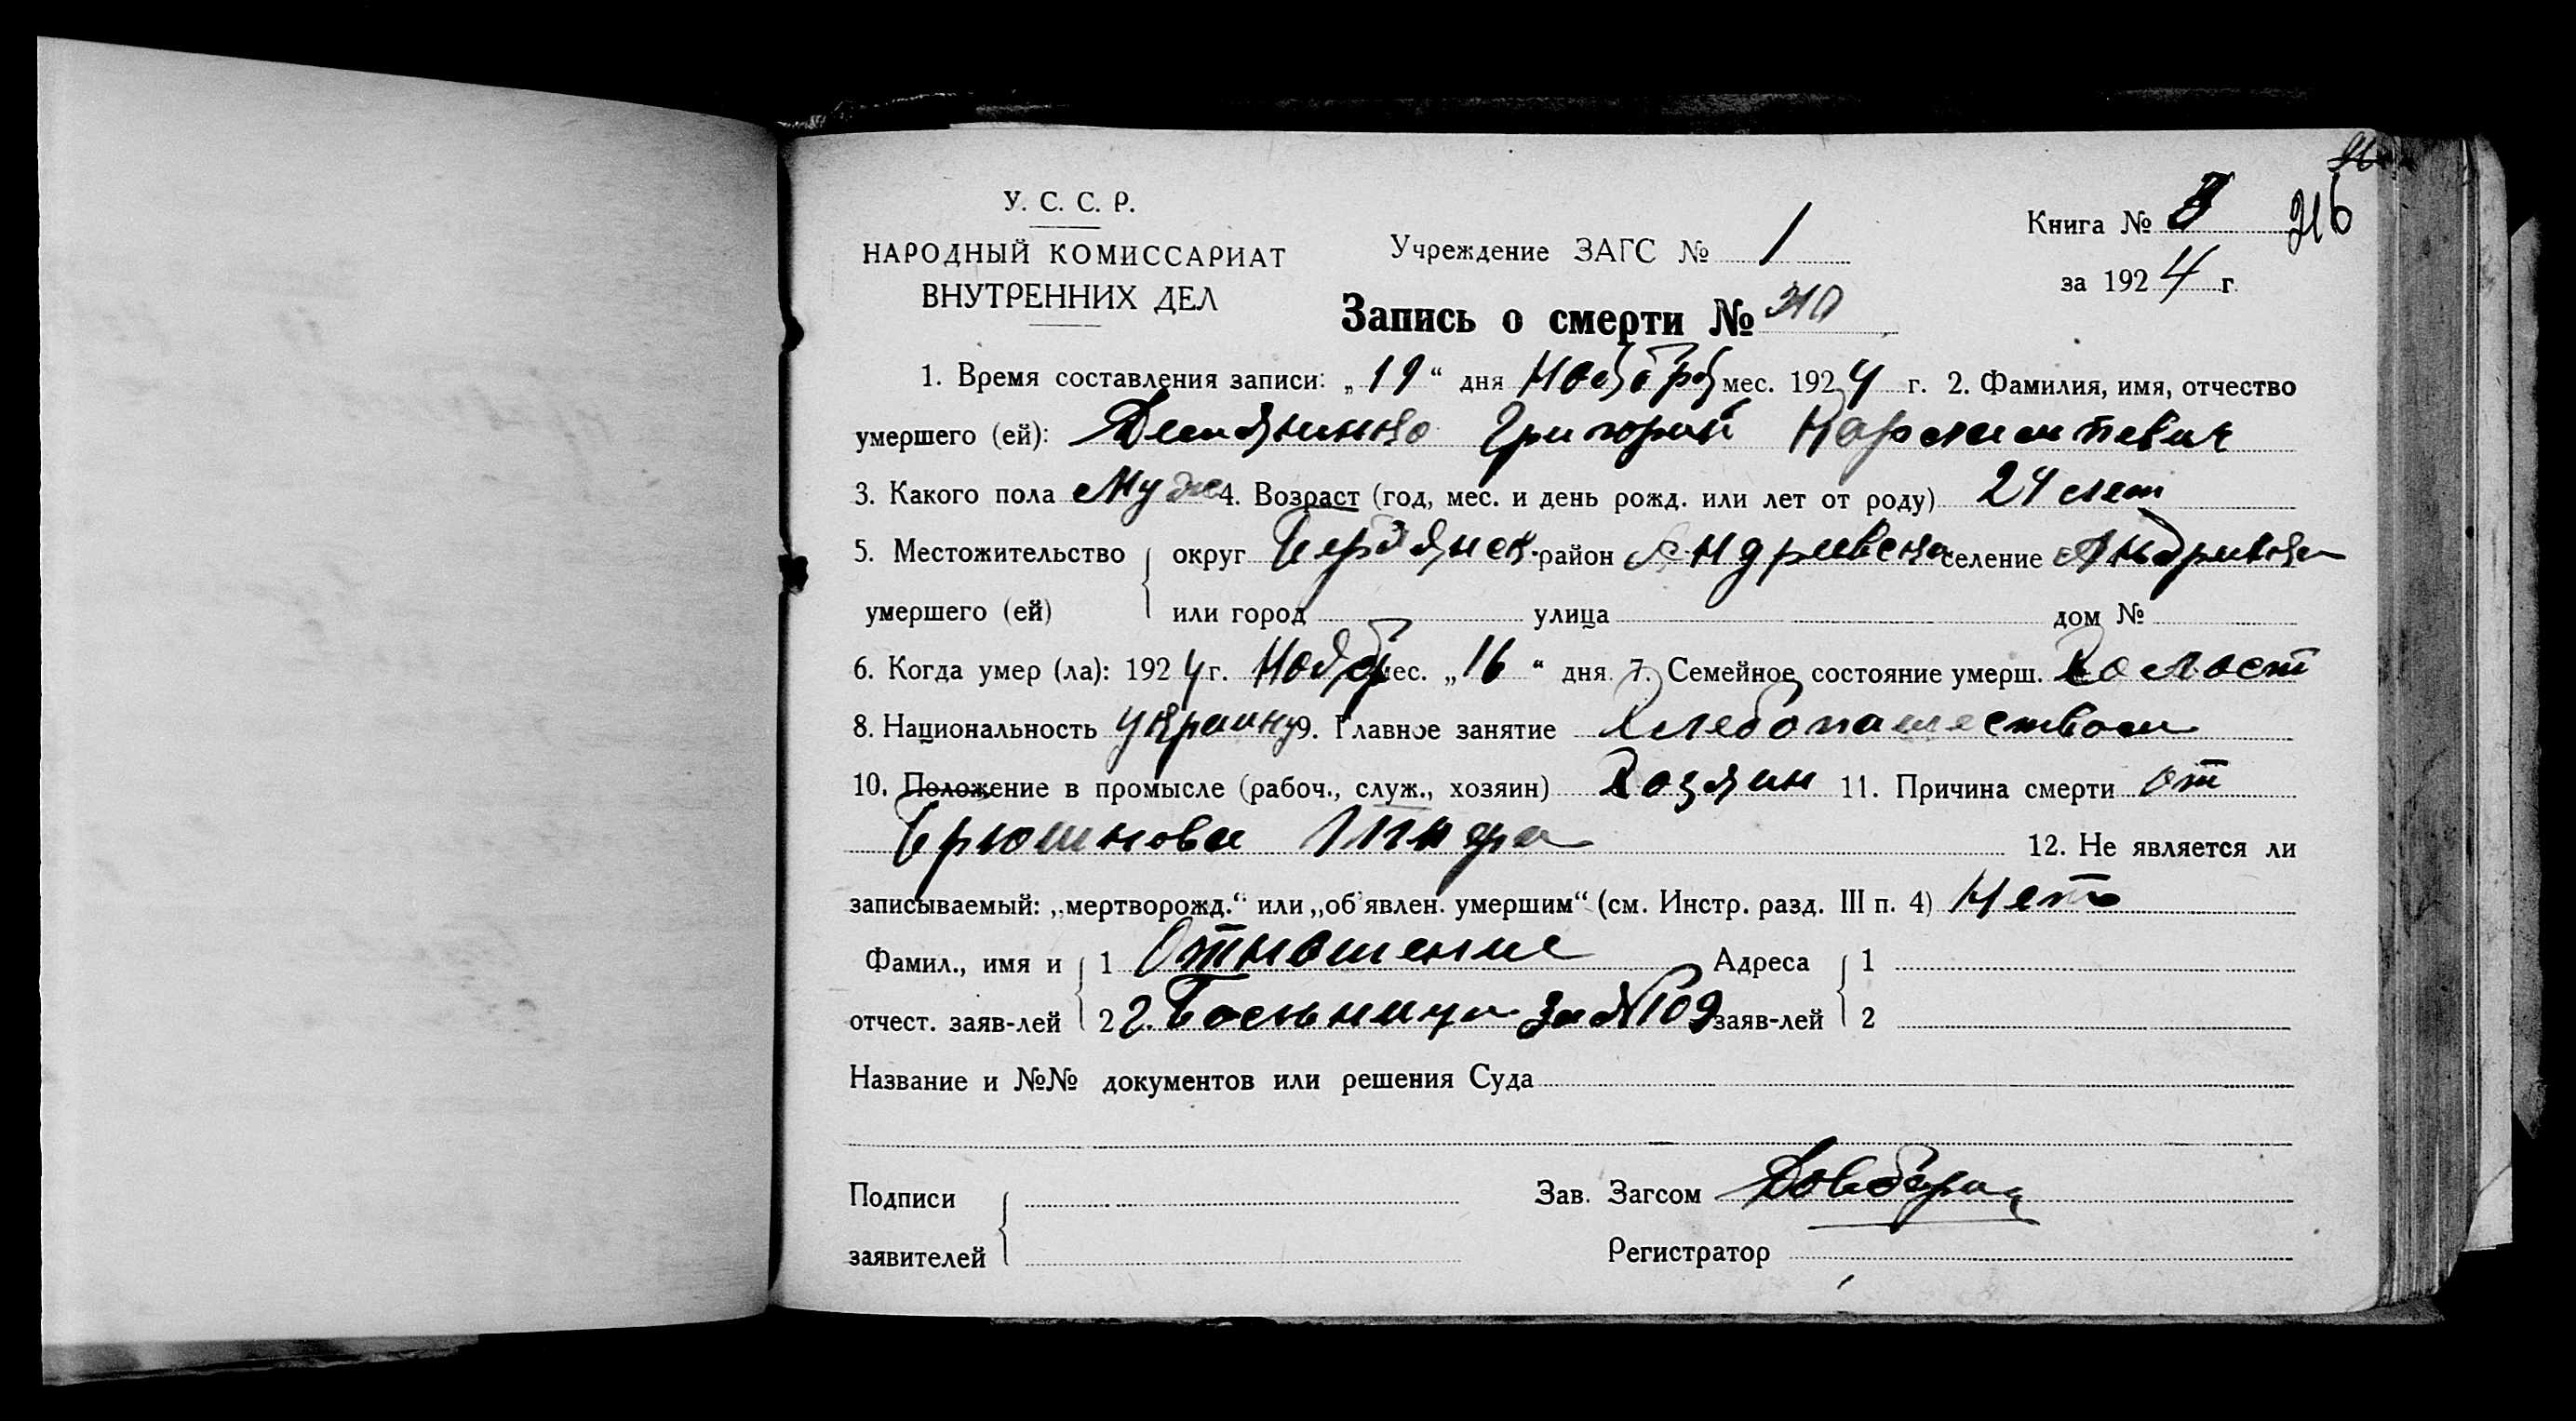 216
У. С. С. Р.
НАРОДНЫЙ КОМИССАРИАТ
ВНУТРЕННИХ ДЕЛ
Учреждение ЗАГС № 1
Книга №
за 1924 г.
Запись о смерти № 310
1. Время составления записи: „19“ дня Ноября мес. 1924 г. 2. Фамилия, имя, отчество
умершего (ей): Григорий
3. Какого пола Муж 4. Возраст (год, мес. и день рожд. или лет от роду) 24 лет
5. Местожительство округ Бердянск. район Андреевска селение Андривка
умершего (ей) или город улица дом №
6. Когда умер (ла): 1924 г. Ноябр мес. „16“ дня. 7. Семейное состояние умерш. Холост
8. Национальность украинц 9. Главное занятие Хлебопашеством
10. Положение в промысле (рабоч., служ., хозяин) Хозяин 11. Причина смерти от
Брюшнова Тифа 12. Не является ли
записываемый: „мертворожд.“ или „об'явлен. умершим“ (см. Инстр. разд. III п. 4) Нет
Фамил., имя и 1 Отношение Адреса 1
отчест. заяв-лей 2 г. Больница за № 109 заяв-лей 2
Название и №№ документов или решения Суда
Подписи Зав. Загсом
заявителей Регистратор